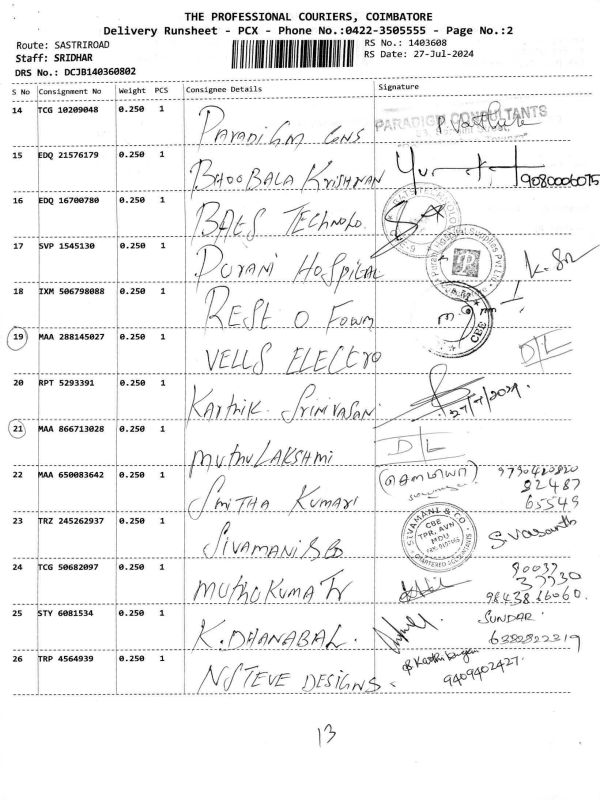 THE PROFESSIONAL COURIERS, COIMBATORE
Delivery Runsheet - PCX - Phone No.:0422-3505555 - Page No.:2
Route: SASTRIROAD
RS No.: 1403608
Staff: SRIDHAR
RS Date: 27-Jul-2024
DRS No.: DCJB140360802
S No Consignment No Weight PCS Consignee Details Signature
14 TCG 10209048 0.250 1 PARADIGM CONS PARADIGM CONSULTANTS
15 EDQ 21576179 0.250 1 BHOOBALA KRISHNAN 9080006075
16 EDQ 16700780 0.250 1 BAES TECHNOLO.
17 SVP 1545130 0.250 1 PURANI HOSPITAL Purani Hospital Supplies Pvt Ltd K. SR
18 IXM 506798088 0.250 1 REST O FOWM CBE
19 MAA 288145027 0.250 1 VELLS ELECTRO D/L
20 RPT 5293391 0.250 1 KARTHIK. SRINIVASAN 27/7/2024
21 MAA 866713028 0.250 1 MUTHULAKSHMI D/L
22 MAA 650083642 0.250 1 SMITHA KUMARI 82487
65549
23 TRZ 245262937 0.250 1 SIVAMANI & CO SIVAMANI & CO. CBE TPR, AVN MDU CHARTERED ACCOUNTANTS S. Vasanth
24 TCG 50682097 0.250 1 MUTHUKUMAR
25 STY 6081534 0.250 1 K. DHANABAL. SUNDAR
26 TRP 4564939 0.250 1 NSTEVE DESIGNS. 9409402427.
13